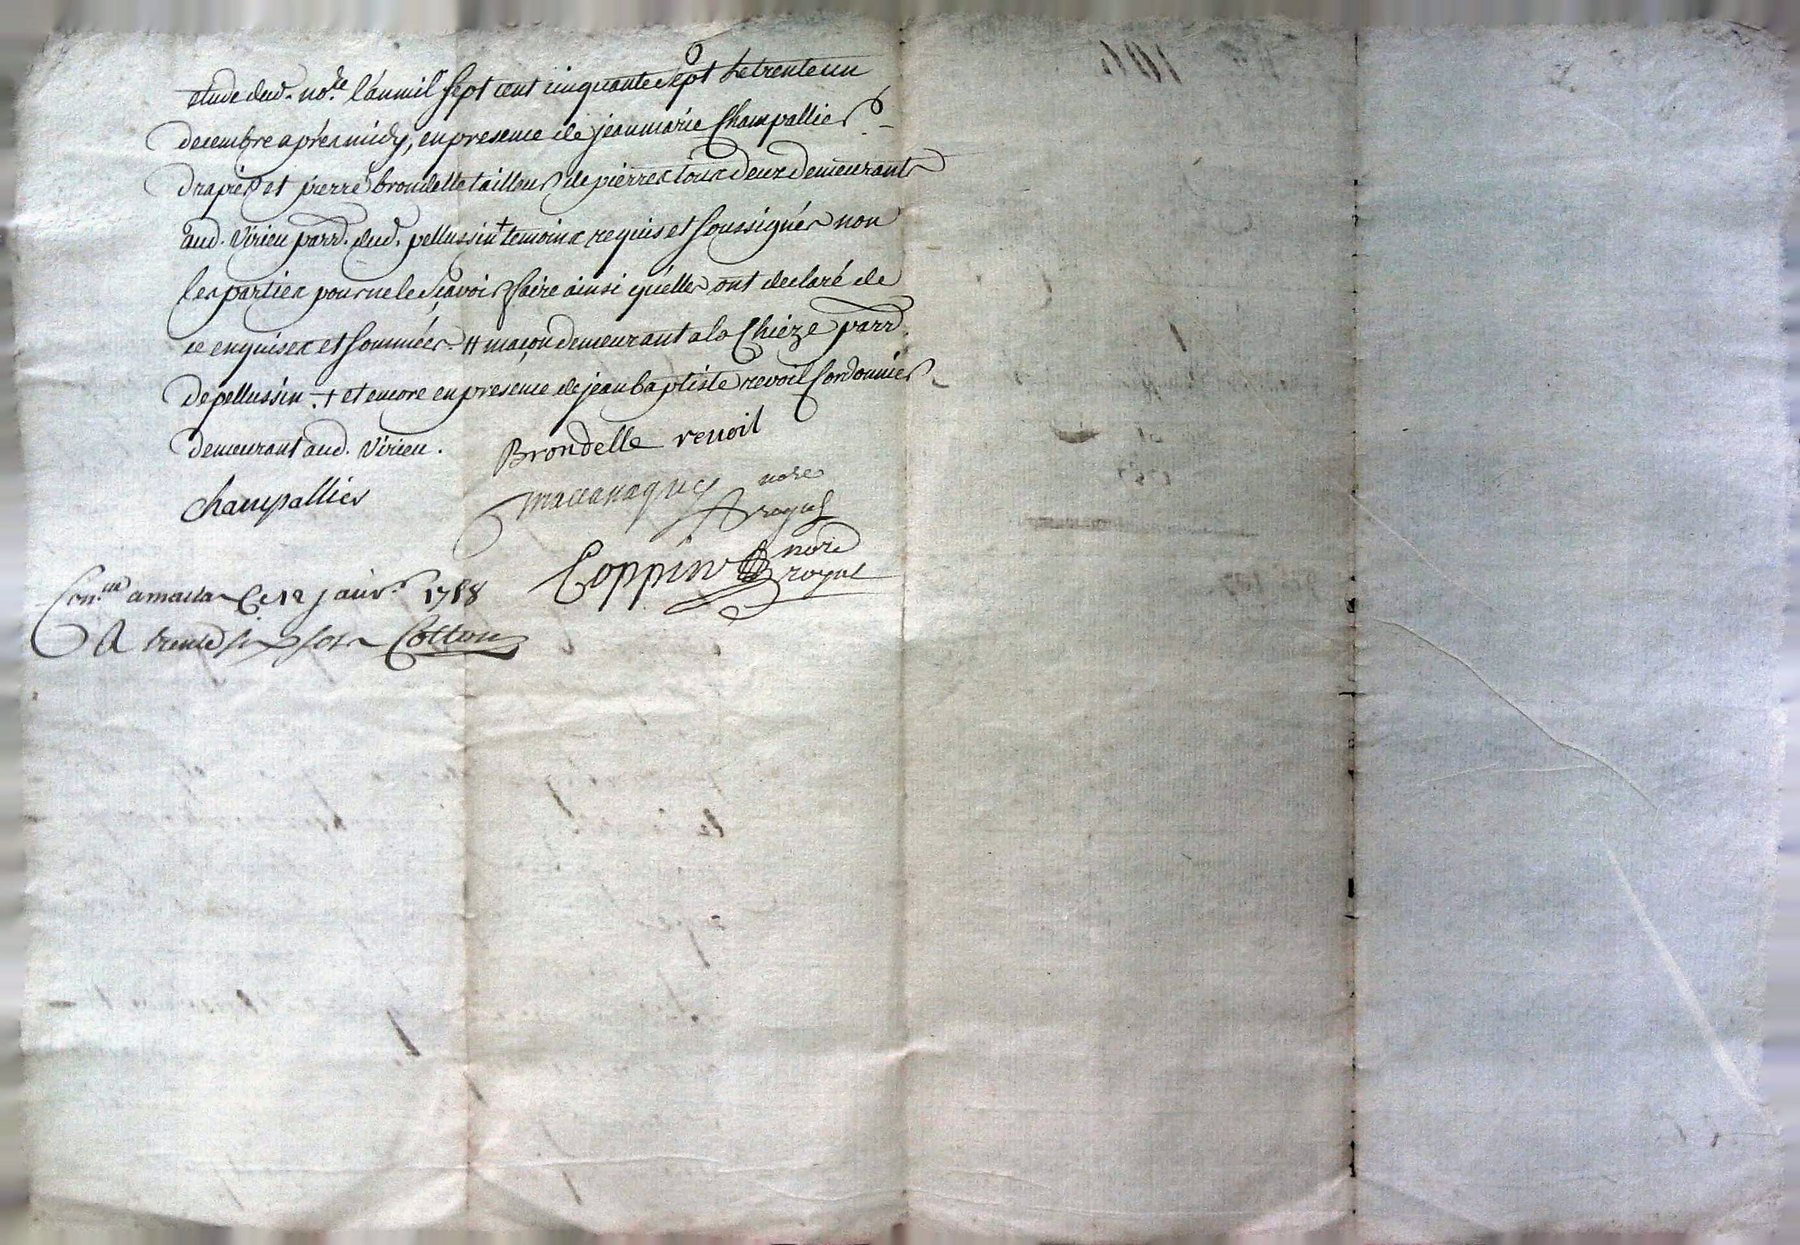 etude dud. no.re l'an mil sept cent cinquante sept le trente un
decembre apres midy, en presence de jean marie Champallier
drapier et pierre brondelle tailleur de pierres tous deux demeurants
aud. Virieu parr. dud. pellussin + temoins requis et soussignés non
les parties pour ne le sçavoir faire ainsi qu'elles ont declaré de
ce enquises et sommées. # maçon demeurant a la Chièze parr.
de pellussin. + et encore en presence de jean baptiste revoil Cordonnier
demeurant aud. Virieu.
Brondelle revoil
Champallier
nore
royal
Coppin nore
royal
Con.lle a malla Ce 12 janv. 1758
R trente six sols Cottau